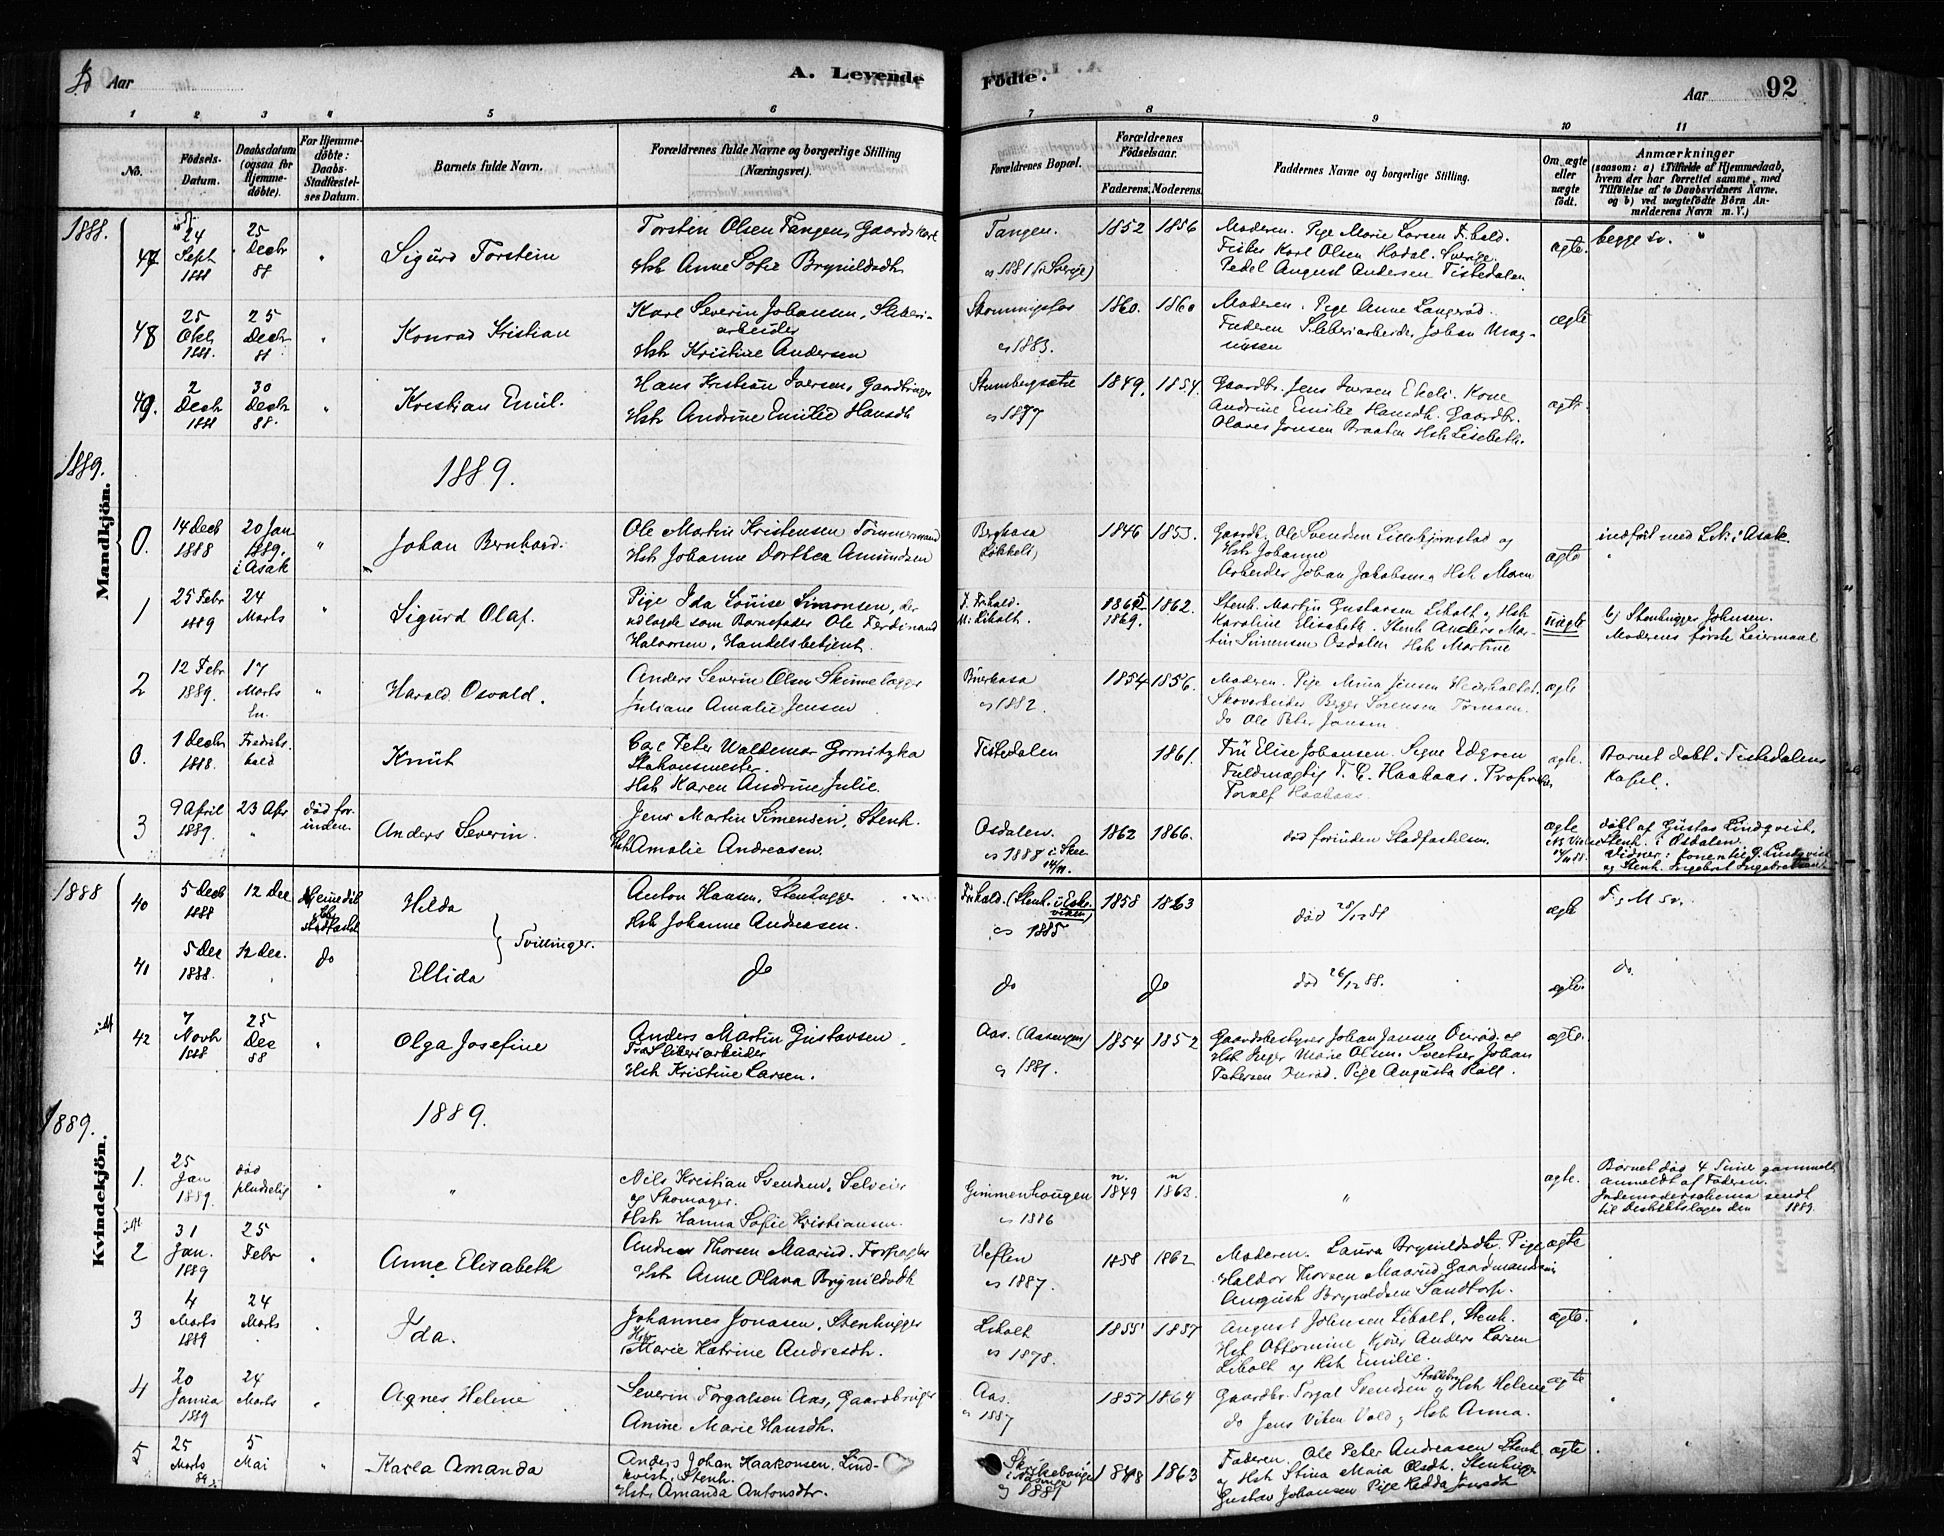 Aar
A. Levende
Födte.
Aar
92
1 2 3 4 5 6 7 8 9 10 11
No.
Födsels-
Datum.
Daabsdatum
(ogsaa for
Hjemme-
döbte).
For Hjemme-
döbte:
Daabs-
Stadfæstel-
ses Datum.
Barnets fulde Navn.
Forældrenes fulde Navne og borgerlige Stilling
(Næringsvei).
Forældrenes Bopæl.
Forældrenes
Födselsaar.
Faderens. Moderens.
Faddernes Navne og borgerlige Stilling.
Om ægte
eller
uægte
födt.
Anmærkninger
(saasom: a) i Tilfælde af Hjemmedaab,
hvem der har forrettet samme, med
Tilföielse af to Daabsvidners Navne.
og b) ved uægtefödte Börn An-
melderens Navn m. V.)
Mandkjön.
1888.
47
24
Sept
1888
25
Decbr
88
"
Sigurd Torstein
Torstin Olsen Tangen, Gaardskarl
Hst Anne Sofie Brynildsdtr
Tangen.
1881 (i Sverige)
1852 1856
Moderen. Pige Marie Larsen F.hald.
Fisker Karl Olsen Hodal. Sverige.
Pedel August Andersen Tistedalen
ægte.
begge Sv.
48
25
Oktr
1888.
25
Decbr
88
Konrad Kristian
Karl Severin Johansen, Sliberi-
arbeider
Hst Kristine Andersen
1883.
1860. 1860
Moderen. Pige Anne Langerød.
Faderen Sliberiarbeider Johan Mag-
nusen
ægte
49.
2
Decbr
1888
30
Decbr
88.
"
Kristian Emil.
Hans Kristian Iversen, Gaardbruger
Hst Andrine Emilie Hansdtr
1877
1849. 1854.
Gaardbr. Jens Iversen Ekeli. Kone
Andrine Emilie Hansdtr. Gaardbr.
Olaves Jonsen Braaten Hst Lisebeth.
ægte.
1889.
1889.
0.
14 Decb
1888
20 Jan
1889.
i Asak
"
Johan Bernhard.
Ole Martin Kristensen Tømmermand
Hst Johanne Dorthea Amundsen
Berghasa
1846 1853.
Gaardb. Ole Svendsen Lillekjørnstad og
Hst Johanne
Arbeider Johan Jakobsen og Hst Maren
ægte
indført med Lit. i Asak
1
25 Febr
1889
24
Marts
"
Sigurd Olaf.
Pige Ida Louise Simonsen, der
udlagde som Barnefader Ole Ferdinand
Halvorsen, Handelsbetjent.
F. Fr.hald.
M. Libolt.
1865
1869.
1862.
Stenh. Martin Gustavsen Libolt og Hst
Karoline Elisabeth. Stenh Anders Mar-
tin Simensen Osdalen Hst Martine
uægte
b) Stenhugger Johnsen.
Moderens første Leiermaal
2
12 Febr
1889.
17
Marts
"
Harald Osvald.
Anders Severin Olsen Skinnelægger
Juliane Amalie Jensen
1882.
1854 1856.
Moderen. Pige Mina Jensen
Skovarbeider Berger Sørensen
do Ole Peter Jansen.
ægte
0.
1 Decbr
1888.
Fredriks
hald
Knut
Carl Peter Waldemar Gornitzka
Stationsmester.
Hst Karen Andrine Julie.
Tistedalen
1861.
Fru Elise Johansen. Signe Edgren
Fuldmægtig T. C. Haakaas.
Toralf Haakaas.
ægte.
Barnet døbt i Tistedalens
Kapel.
3
9 April
1889.
23 Apr
"
død for-
inden.
Anders Severin.
Jens Martin Simensen, Stenh.
Hst Amalie Andreasen.
Osdalen.
1888 i Skee
1862 1866.
død forinden Stadfæstelsen.
ægte
døbt af Gustav Lindqvist,
Stenh. i Osdalen.
Kvindekjön.
1888
40
5 Decb
1888
12 Dec
Hilda
Anton Hansen, Stenhugger
Hst Johanne Andreasen.
1885
1858 1863
død 28/12 88
ægte
F. og M. Sv.
Tvillinger.
41
5 Dec
1888.
12 Dec.
do
Ellida
do
do
do
død 26/12 88.
ægte.
do.
42
7
Novbr
1888
25
Dec
88
"
Olga Josefine
Anders Martin Gustavsen
Træsliberiarbeider
Hst Kristine Larsen.
Aas. (Aasengen)
1881.
1854 1852
Gaardsbestyrer Johan Jansen og
Hst Inger Marie Olsen. Johan
Petersen. Pige Augusta Røll.
ægte.
1889.
1889.
1.
25
Jan
1889.
død
pludselig
"
"
Nils Kristian Svendsen, Selveier
og Skomager.
Hst Hanna Sofie Kristiansen.
Gimmenhougen
1886
1849 1863.
"
ægte.
Barnet død 4 Timer gammelt
anmeldt af Faderen.
Jordemoderskema sendt
til Distriktslægen den 1889.
2
31
Jan.
1889
25
Febr
"
Anne Elisabeth
Andreas Thorsen Maarud. Forpagter
Hst Anne Olava Brynildsdtr
Veflen
1887.
1858 1862
Moderen. Laura Brynildsdtr. Pige
Haldor Thorsen Maarud Gaardmandssøn
August Brynildsen Sandtorp.
ægte
3
4
Marts
1889
24
Marts
Ida.
Johannes Jonasen, Stenhugger
Hst Marie Katrine Andresdtr.
Libolt
1878.
1855 1857
August Johnsen Libolt, Stenh.
Hst Ottomine Kjøs Anders Larsen
Libolt og Hst Emilie.
ægte.
4
20
Janua
1889
24
Marts
"
Agnes Helene
Severin Torgalsen Aas, Gaardbruger
Anine Marie Hansdtr.
Aas.
1887
1857 1864
Gaardbr. Torgal Svendsen og Hst Helene
do Jens Viken Vold og Hst Anna.
ægte
5
25
Marts
89
5
Mai
"
Karla Amanda
Anders Johan Haakonsen. Lind-
kvist, Stenh.
Hst Amanda Antonsdtr.
1889
1848 1863
Faderen. Ole Peter Andreasen Stenh
og Hst Stina Maia Olsdtr. Stenhugger
Gustav Johansen Pige Hedda Jonsdtr
ægte